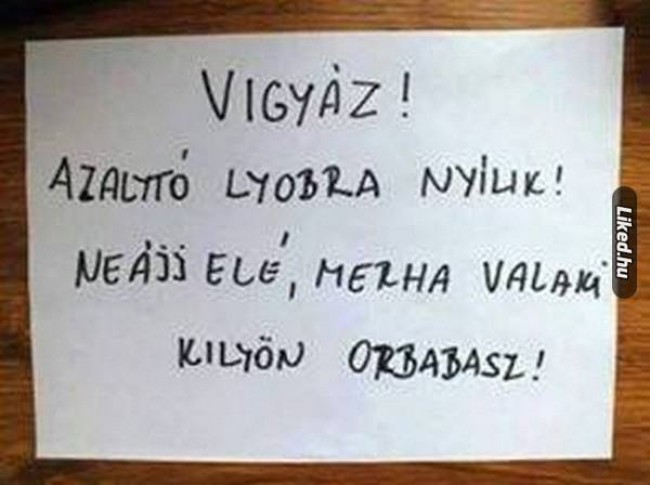 VIGYÁZ!
AZALYTÓ LYOBRA NYÍLIK!
NEÁJJ ELÉ, MERHA VALAKI
KILYÖN ORBABASZ!
Liked.hu